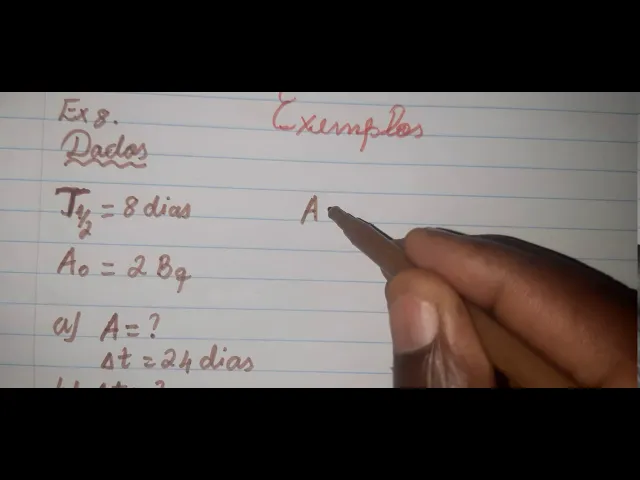 Exemplos
Ex 8.
Dados
T1/2 = 8 dias
A
A0 = 2 Bq
a) A = ?
Δt = 24 dias